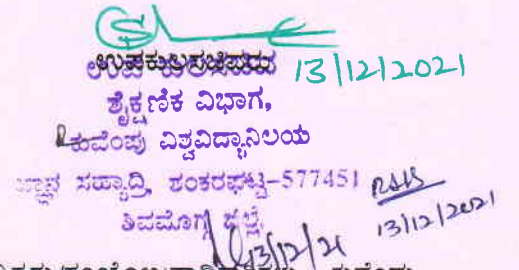 ಉಪಕುಲಸಚಿವರು 13/12/2021
ಶೈಕ್ಷಣಿಕ ವಿಭಾಗ,
ಕುವೆಂಪು ವಿಶ್ವವಿದ್ಯಾನಿಲಯ
ಜ್ಞಾನ ಸಹ್ಯಾದ್ರಿ, ಶಂಕರಘಟ್ಟ-577451
ಶಿವಮೊಗ್ಗ ಜಿಲ್ಲೆ 13/12/2021
13/12/21